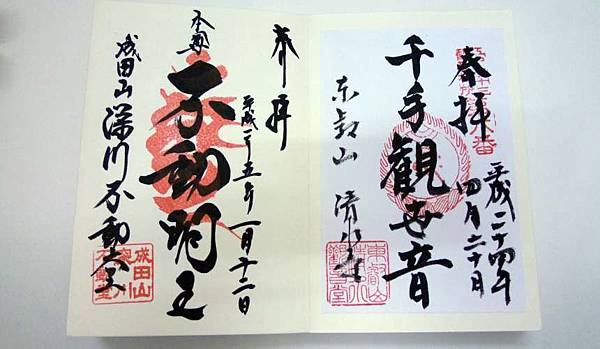 奉拝
平成二十四年
四月二十日
千手観世音
東叡山 清水堂
東叡山
清水
観音堂
奉拝
平成二十五年一月十二日
本尊
不動明王
成田山 深川不動堂
成田山
深川
不動堂